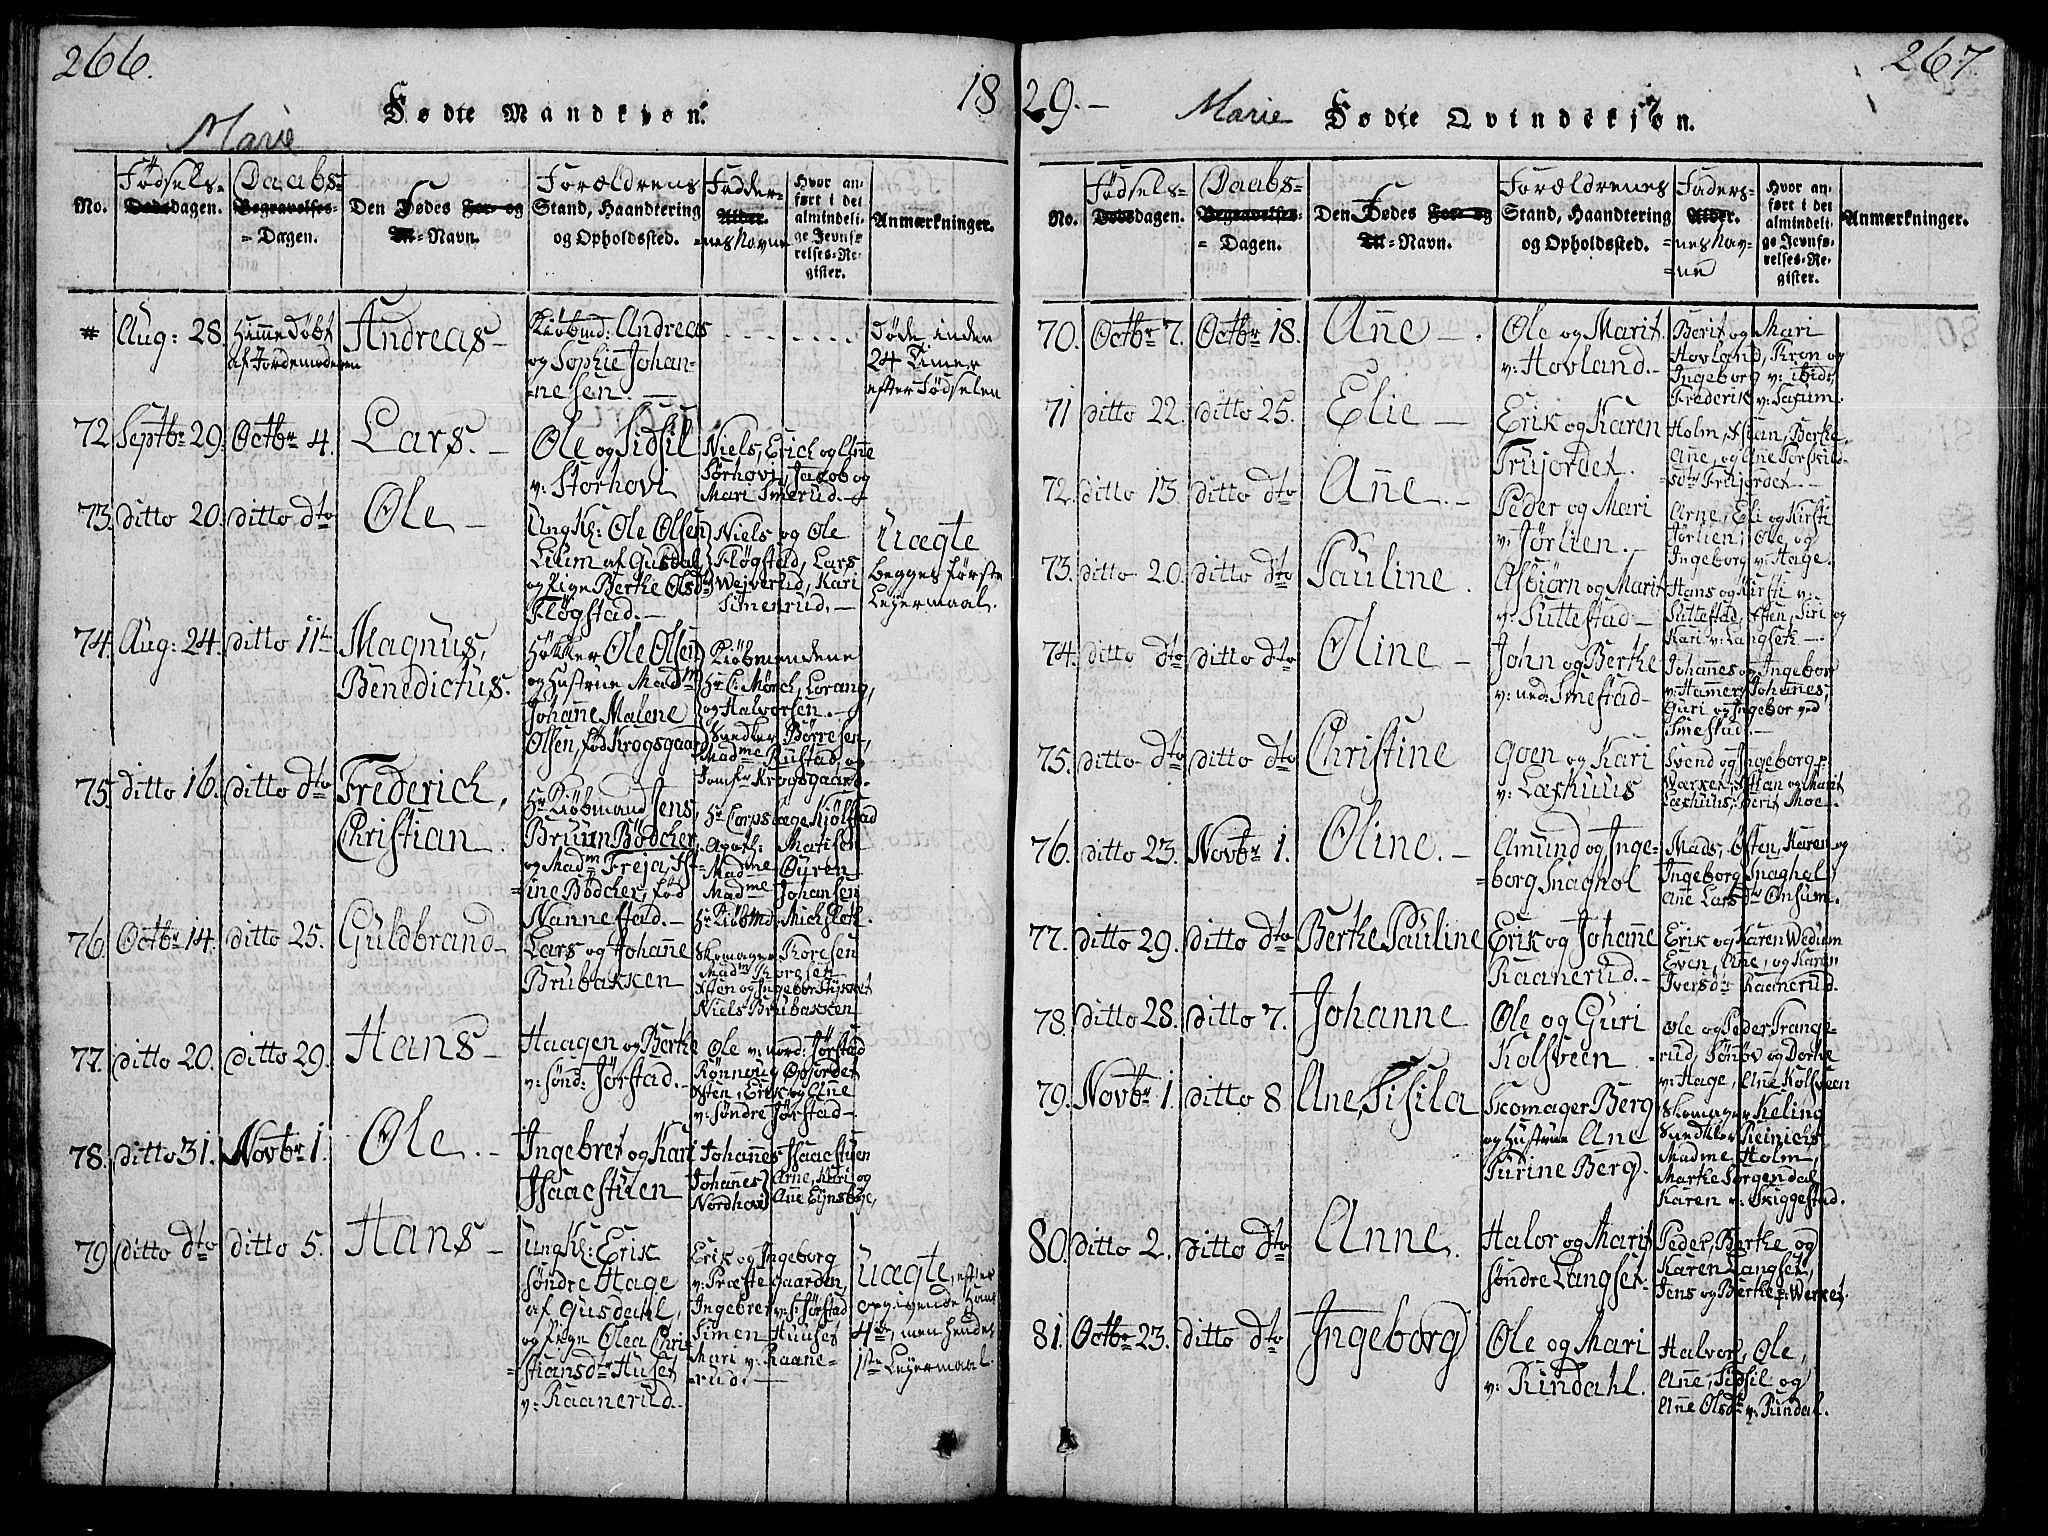 266.
18
Fødte Mandkjøn.
Marie
No.
Fødsels-
Dødsdagen.
Daabs-
Begravelses-
=Dagen.
Den Fødes For- og
T.-Navn.
Forældrenes
Stand, Haandtering
og Opholdssted.
Fadder-
Alder.
=nes Navne
Hvor an-
ført i det
almindeli-
ge Jevnfø-
relses-Re-
gister.
Anmærkninger.
#
Aug: 28.
Hjemmedøbt
af Jordemoderen
Andreas
Kiøbmd: Andreas
og Sophie Johan-
=nesen.
Døde inden
24 Timer
efter Fødselen
72.
Septbr 29.
Octbr 4.
Lars.
Ole og Sidsil
v: Storhovi
Niels, Erich og Anne
Sørhovi, Jacob og
Mari Smerud.
73.
ditto 20.
ditto dto
Ole
Ungk: Ole Olsen
Lium af Gusdal,
og Pige Berthe Olsdr
Fløgstad.
Niels og Ole
Fløgstad, Lars
Wejverud, Kari
Simenrud.
Uægte
begges første
Lejermaal.
74.
Aug: 24.
ditto 11te
Magnus,
Benedictus.
Høkker Ole Olsen
og Hustrue Madm
Johanne Malene
Olsen, fød Krogsgaard
Kiøbmendene
Hr C: Mørch, Lorang,
og Halvorsen.
Snedker Børresen,
Madme Rustad, og
Jomfr Krogsgaard.
75.
ditto 16.
ditto dto
Frederich,
Christian.
Hr Kiøbmand Jens
Bruun Bødcher,
og Madm Freja, Ist-
=ine Bødcher, fød
Nannestad.
Hr Corpslæge Kjølstad
Apoth: Matisen
Madme Øyren
Madme Johansen
Hr Kiøbmd Mich: Leth.
76.
Octbr 14.
ditto 25.
Guldbrand
Lars og Johanne
Brubakken
Skomager Toresen
Madm Thorgsen
Esten og Ingebor Stykket
Niels Brubakken
77.
ditto 20.
ditto 29.
Hans
Haagen og Berthe
v: sønd: Jørstad.
Ole v: nord: Jørstad
Rønnoug Opjordet
Østen, Erik og Anne
v: søndre Jørstad
78.
ditto 31.
Novbr 1.
Ole.
Ingebret og Kari
Isaacstuen
Johannes Isaacstuen
Johannes Arne, Kari og
Nordhovi Ane Eijnsbye,
79
ditto dto
ditto 5.
Hans
Ungk: Erik
søndre Hage
af Gusdahl,
og Pige Olea Chri-
=stiansdr Huset
v: Raanerud.
Erik og Ingeborg
v: Præstegaarden,
Ingebret v: s: Jørstad
Simen Huuset
Mari v: Raane-
=rud.
Uægte, efter
opgivende hans
4de, men hendes
1ste Lejermaal.
29.
267
Marie
Fødte Qvindekjøn.
No.
Fødsels-
Dødsdagen.
Daabs-
Begravelses-
=Dagen.
Den Fødes For- og
T.-Navn.
Forældrenes
Stand, Haandtering
og Opholdssted.
Fadders-
Alder.
=nes Nav-
=ne
Hvor an-
ført i det
almindeli-
ge Jevnfø-
relses-Re-
gister.
Anmærkninger.
70.
Octbr 7.
Octbr 18.
Anne
Ole og Marit
v: Hovland.
Berit og Mari
Hovland, Tron og
Ingeborg v: ibid:
Frederik v: Saxum.
71
ditto 22.
ditto 25.
Elie
Erik og Karen
Trujordet.
Holm, Stian, Berthe
Ane, og Ane Torskild-
sdtr Trujordet.
72.
ditto 13.
ditto dto
Anne.
Peder og Mari
v: Jørlien.
Arne, Eli og Kirsti
Jørlien, Ole og
Ingeborg v: Hage.
73.
ditto 20.
ditto dto
Pauline.
Asbjørn og Marit
v: Suttestad
Hans og Kirsti v:
Suttestad, Esten, Siri og
Kari v: Langseth.
74.
ditto dto
ditto dto
Oline
John og Berthe
v: ned: Smestad
Johannes og Ingebor
v: Hamer, Johannes,
Guri og Ingebor ved
Smestad.
75.
ditto dto
ditto dto
Christine
Goen og Kari
v: Læxhuus
Svend og Ingeborg
Barken, Stian og Marit
Læxhuus, Berit Moe.
76.
ditto 23.
Novbr 1.
Oline.
Amund og Inge-
=borg Snaghol
Mads, Østen, Karen og
Ingeborg Snaghol
Ane Larsdtr Onsum.
77.
ditto 29.
ditto dto
Berthe Pauline
Erik og Johanne
Raanerud.
Erik og Karen Wedum
Even, Ane, og Karen
Iversdr Raanerud.
78.
ditto 28.
ditto 7.
Johanne
Ole og Guri
Kolsveen
Ole og Peder Trange-
rud, Sønøv og Dorthe
v: Hage, Ane Kolsveen
79.
Novbr 1.
ditto 8
Ane Sisila
Skomager Berg
og Hustrue Ane
Turine Berg.
Skomager Keling
Snedker Reinichs
Madme Holm,
Marthe Sørgendal
Karen v: Skiggestad.
80.
ditto 2.
ditto dto
Anne.
Halvor og Marit
søndre Langset.
Peder, Berthe og
Karen Langset,
Jens og Berthe p: Werket.
81.
Octbr 23.
ditto dto
Ingeborg
Ole og Mari
v: Rindahl.
Halvor, Ole,
Ane, Sidsil og
Anne Olsdr v: Rindal.